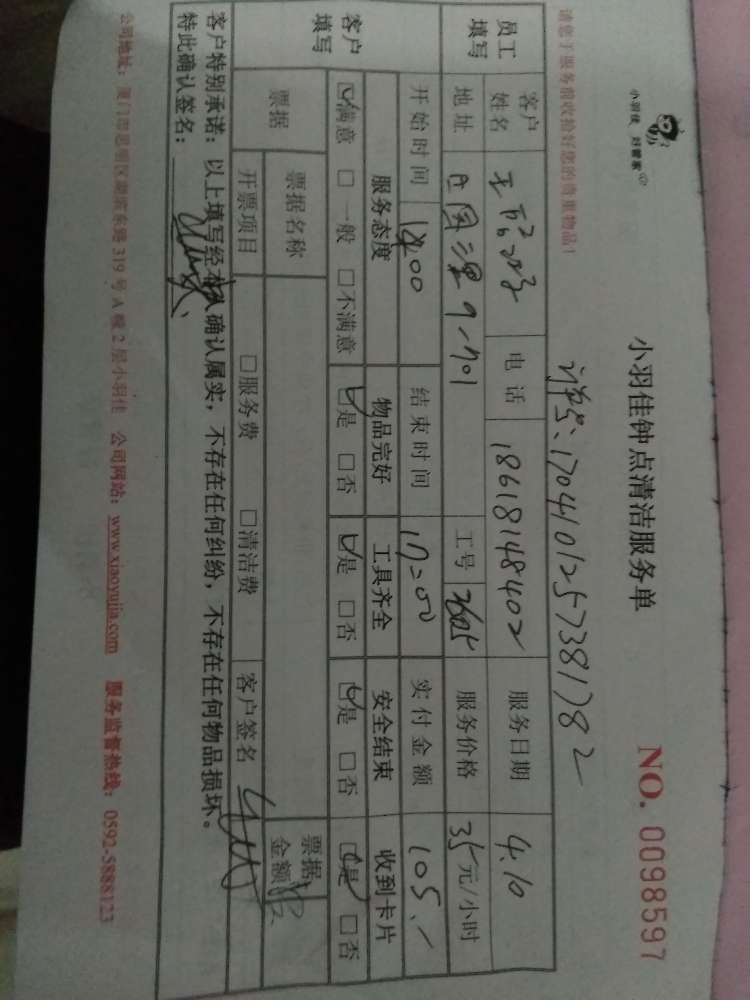 小羽佳 好管家
小羽佳钟点清洁服务单
NO. 0098597
请您于服务前收拾好您的贵重物品!
订单号:1704101257381782
员工填写
客户姓名 电话 18618148402 服务日期 4.10
地址 9-701 工号 2605 服务价格 35元/小时
开始时间 14:00 结束时间 17:00 实付金额 105.
客户填写
服务态度 物品完好 工具齐全 安全结束 收到卡片
☑满意 □一般 □不满意 ☑是 □否 ☑是 □否 ☑是 □否 ☑是 □否
票据 票据名称 票据金额
开票项目 □服务费 □清洁费 客户签名
客户特别承诺:以上填写经本人确认属实,不存在任何纠纷,不存在任何物品损坏。
特此确认签名:
公司地址:厦门市思明区湖滨东路319号A幢2层小羽佳 公司网站:www.xiaoyujia.com 服务监督热线:0592-5888123